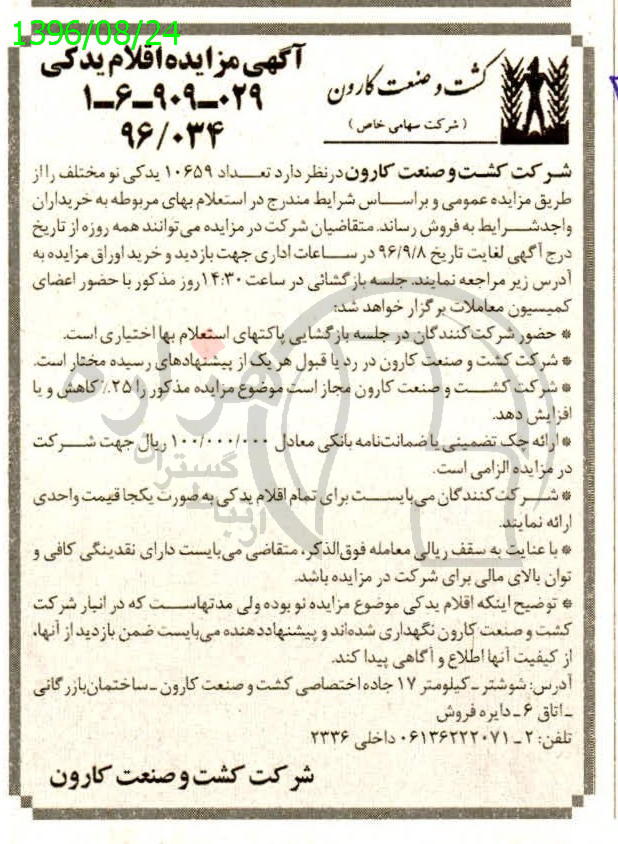 1396/08/24
آگهی مزایده اقلام یدکی
۱-۶-۹۰۹-۰۲۹
۹۶/۰۳۴
کشت و صنعت کارون
( شرکت سهامی خاص )
شرکت کشت و صنعت کارون در نظر دارد تعداد ۱۰۶۵۹ یدکی نو مختلف را از
طریق مزایده عمومی و بر اساس شرایط مندرج در استعلام بهای مربوطه به خریداران
واجد شرایط به فروش رساند. متقاضیان شرکت در مزایده می‌توانند همه روزه از تاریخ
درج آگهی لغایت تاریخ ۹۶/۹/۸ در ساعات اداری جهت بازدید و خرید اوراق مزایده به
آدرس زیر مراجعه نمایند. جلسه بازگشائی در ساعت ۱۴:۳۰ روز مذکور با حضور اعضای
کمیسیون معاملات برگزار خواهد شد:
* حضور شرکت‌کنندگان در جلسه بازگشایی پاکتهای استعلام بها اختیاری است.
* شرکت کشت و صنعت کارون در رد یا قبول هر یک از پیشنهادهای رسیده مختار است.
* شرکت کشت و صنعت کارون مجاز است موضوع مزایده مذکور را ۲۵٪ کاهش و یا
افزایش دهد.
* ارائه چک تضمینی یا ضمانت‌نامه بانکی معادل ۱۰۰/۰۰۰/۰۰۰ ریال جهت شرکت
در مزایده الزامی است.
* شرکت‌کنندگان می‌بایست برای تمام اقلام یدکی به صورت یکجا قیمت واحدی
ارائه نمایند.
* با عنایت به سقف ریالی معامله فوق‌الذکر، متقاضی می‌بایست دارای نقدینگی کافی و
توان بالای مالی برای شرکت در مزایده باشد.
* توضیح اینکه اقلام یدکی موضوع مزایده نو بوده ولی مدتهاست که در انبار شرکت
کشت و صنعت کارون نگهداری شده‌اند و پیشنهاددهنده می‌بایست ضمن بازدید از آنها،
از کیفیت آنها اطلاع و آگاهی پیدا کند.
آدرس: شوشتر - کیلومتر ۱۷ جاده اختصاصی کشت و صنعت کارون - ساختمان بازرگانی
- اتاق ۶ - دایره فروش
تلفن: ۲ - ۰۶۱۳۶۲۲۲۰۷۱ داخلی ۲۳۳۶
شرکت کشت و صنعت کارون